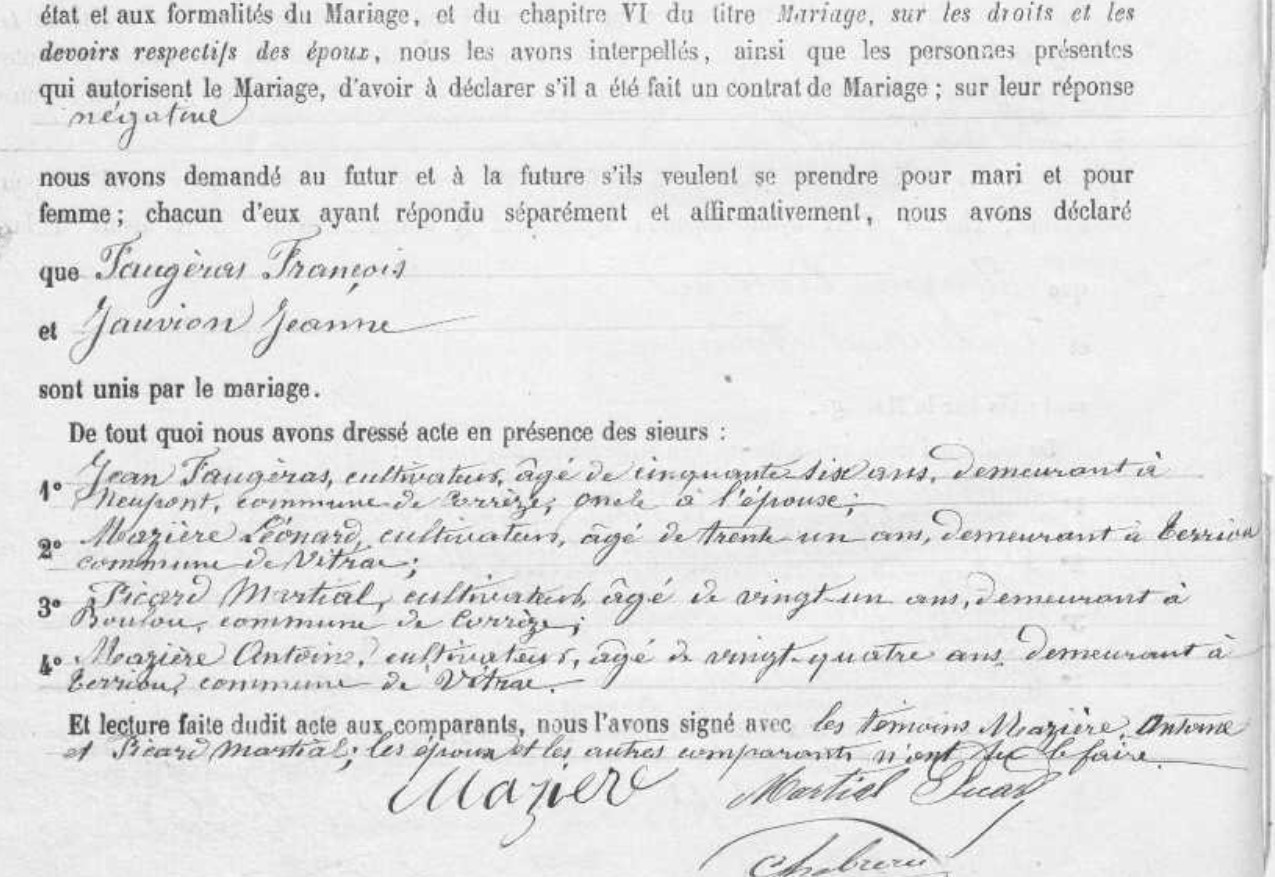 état et aux formalités du Mariage, et du chapitre VI du titre Mariage, sur les droits et les
devoirs respectifs des époux, nous les avons interpellés, ainsi que les personnes présentes
qui autorisent le Mariage, d'avoir à déclarer s'il a été fait un contrat de Mariage ; sur leur réponse
négative
nous avons demandé au futur et à la future s'ils veulent se prendre pour mari et pour
femme ; chacun d'eux ayant répondu séparément et affirmativement, nous avons déclaré
que Faugèras François
et Jauvion Jeanne
sont unis par le mariage.
De tout quoi nous avons dressé acte en présence des sieurs :
1° Jean Faugèras, cultivateur, âgé de cinquante six ans, demeurant à
Neupont, commune de Corrèze, oncle à l'épouse ;
2° Mazière Léonard, cultivateur, âgé de trente un ans, demeurant à Terriou
commune de Vitrac ;
3° Picard Martial, cultivateur, âgé de vingt-un ans, demeurant à
Bouysou, commune de Corrèze ;
4° Mazière Antoine, cultivateur, âgé de vingt-quatre ans, demeurant à
Terriou, commune de Vitrac.
Et lecture faite dudit acte aux comparants, nous l'avons signé avec les témoins Mazière Antoine
et Picard Martial ; les époux et les autres comparants n'ont su le faire.
Maziere Martial Picard